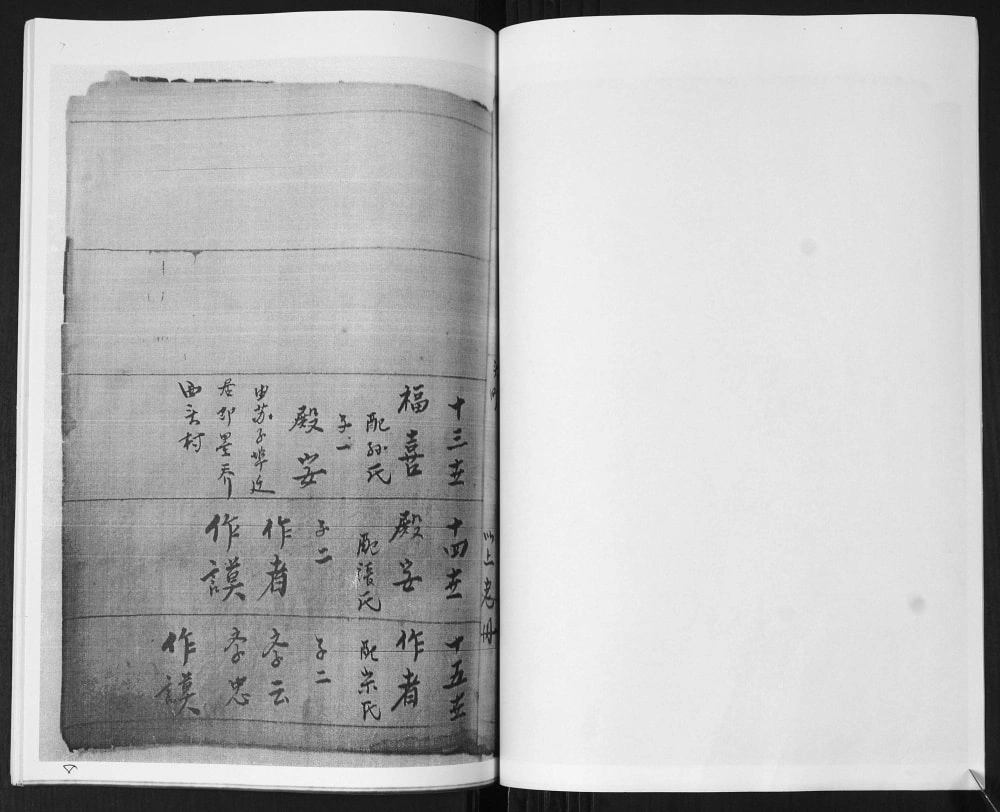 以上老册
十三世
福喜
配孙氏
子一
殿安
由苏子埠迁
居即墨乔
西头村
十四世
殿安
配張氏
子二
作者
作謨
十五世
作者
配崇氏
子二
孝云
孝忠
作謨